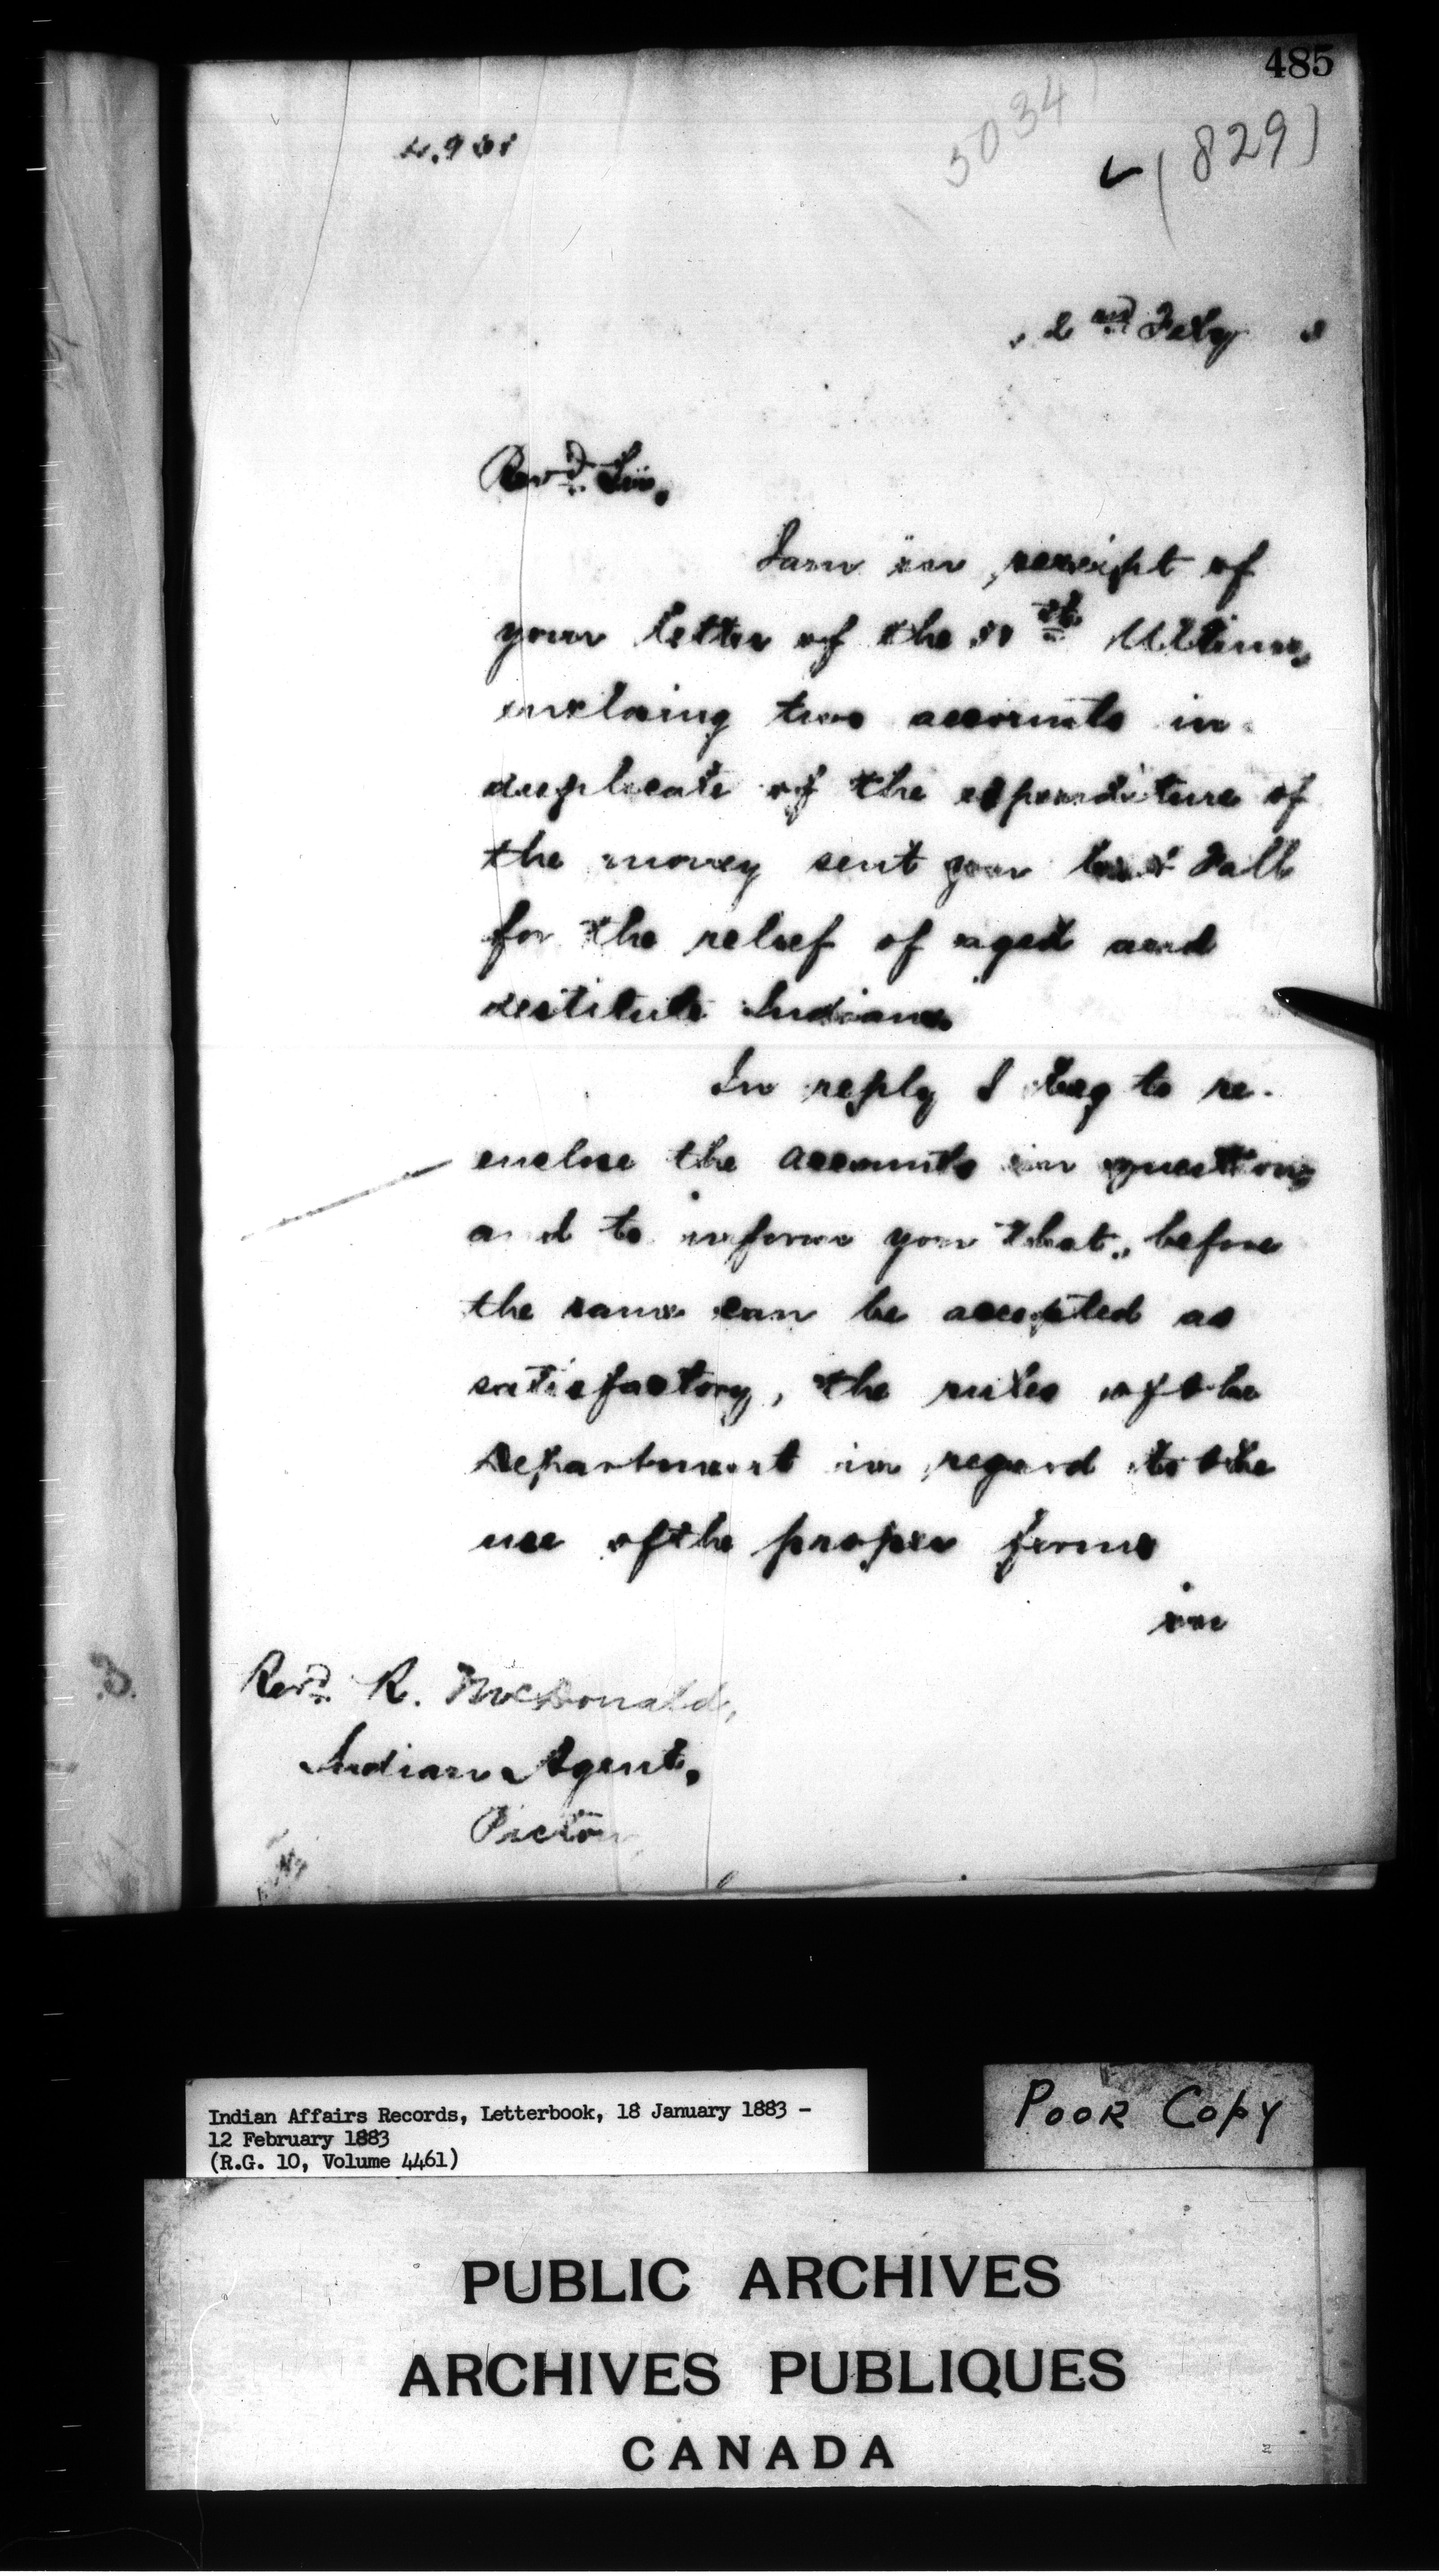 485
5034
(829)
2nd Feby
Revd. Sir,
I am in receipt of
your letter of the Ultimo,
enclosing two accounts in
duplicate of the expenditure of
the money sent you last Fall
for the relief of aged and
destitute Indians.
In reply I beg to re-
enclose the accounts in question,
and to inform you that, before
the same can be accepted as
satisfactory, the rules of the
Department in regard to the
use of the proper forms
in
Revd. R. McDonald,
Indian Agent,
Pictou
Indian Affairs Records, Letterbook, 18 January 1883 -
12 February 1883
(R.G. 10, Volume 4461)
POOR COPY
PUBLIC ARCHIVES
ARCHIVES PUBLIQUES
CANADA